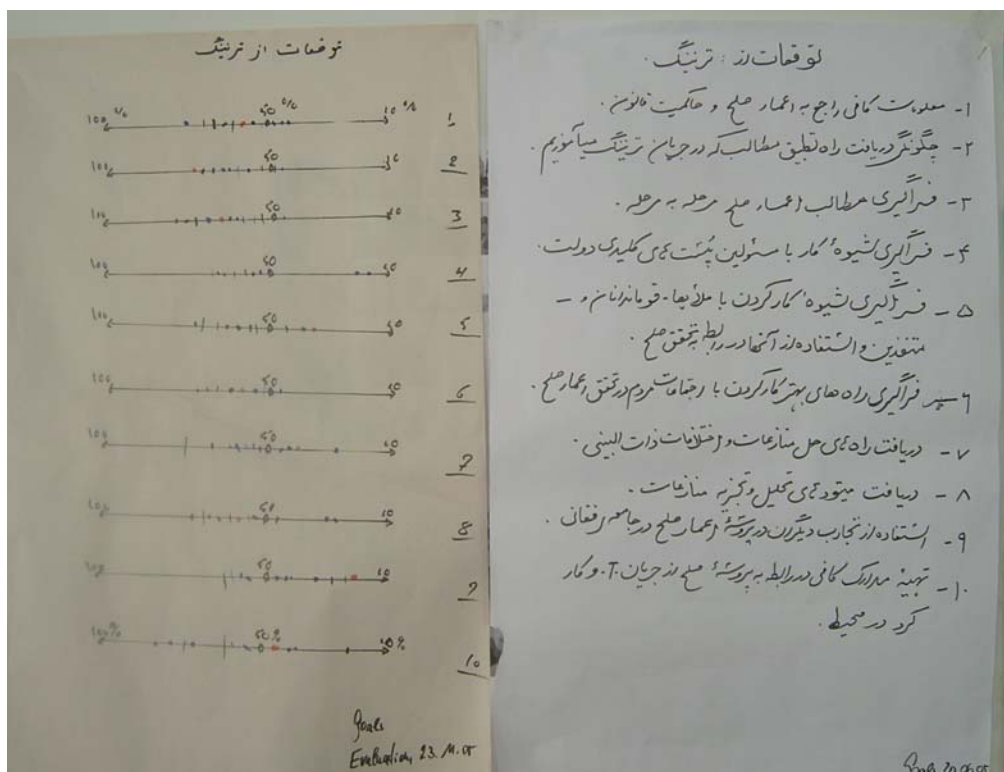 توقعات از ترنینگ
100 % 50 % 10 % 1
100 50 10 2
100 50 10 3
100 50 10 4
100 50 10 5
100 50 10 6
100 50 10 7
100 50 10 8
100 50 10 9
100% 50% 10% 10
Goals
Evaluation, 23.
توقعات از : ترنینگ .
۱- معلومات کافی راجع به اعمار صلح و حاکمیت قانون .
۲- چگونگی دریافت راه تطبیق مطالب که در جریان ترنینگ میآموزیم .
۳- فراگیری مطالب اعمار صلح مرحله به مرحله .
۴- فراگیری شیوهٔ کار با مسئولین پُست های کلیدی دولت .
۵- فراگیری شیوهٔ کار کردن با ملاها - قوماندانان و -
متنفذین و استفاده از آنها در رابطه به تحقق صلح .
۶- فراگیری راه های بهتر کار کردن با اجتماعات مردم در تحقق اعمار صلح .
۷- دریافت راه های حل منازعات و اختلافات ذات البینی .
۸- دریافت میتود های تحلیل و تجزیه منازعات .
۹- استفاده از تجارب دیگران در پروسهٔ اعمار صلح در جامعه افغانی .
۱۰- تهیهٔ مدارک کافی در رابطه به پروسهٔ صلح از جریان .T. و کار
کرد در محیط .
Goals